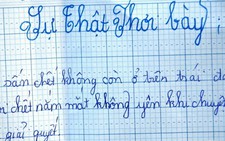 Sự Thật Phơi bày ;
bán chết không còn ở trên trái đ
n chết nằm mắt không yên khi chuyệ
giải quyết.